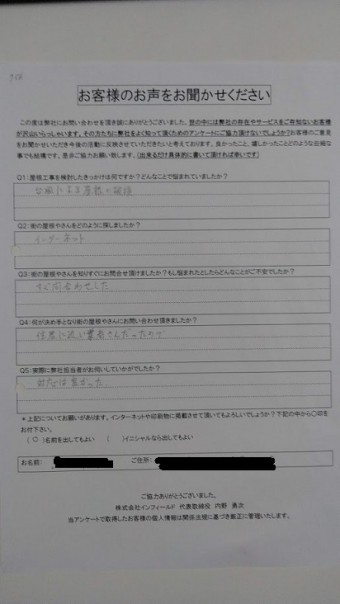 お客様のお声をお聞かせください
この度は弊社にお問い合わせを頂き誠にありがとうございました。世の中には弊社の存在やサービスをご存知ないお客様
が沢山いらっしゃいます。その方たちに弊社をよく知って頂くためのアンケートにご協力頂けないでしょうか?お客様のご意見
をお聞かせいただき今後の活動に反映させていただきたいと考えております。良かったこと、嬉しかったことどのような些細な
事でも結構です。是非ご協力お願い致します。(出来るだけ具体的に書いて頂ければ幸いです)
Q1:屋根工事を検討したきっかけは何ですか?どんなことで悩まれていましたか?
台風による屋根の破損
Q2:街の屋根やさんをどのように探しましたか?
インターネット
Q3:街の屋根やさんを知りすぐにお問合せ頂けましたか?もし悩まれたとしたらどんなことがご不安でしたか?
すぐ問合わせした
Q4:何が決め手となり街の屋根やさんにお問い合わせ頂きましたか?
住居に近い業者さんだったので
Q5:実際に弊社担当者がお伺いしていかがでしたか?
対応は良かった。
*上記についてお願いがあります。インターネットや印刷物に掲載させて頂いてもよろしいでしょうか?下記の中から〇印を
お付下さい。
(〇)名前を出してもよい ( )イニシャルなら出してもよい
お名前: ご住所:
ご協力ありがとうございました。
株式会社インフィールド 代表取締役 内野 勇次
当アンケートで取得したお客様の個人情報は関係法規に基づき厳正に管理いたします。